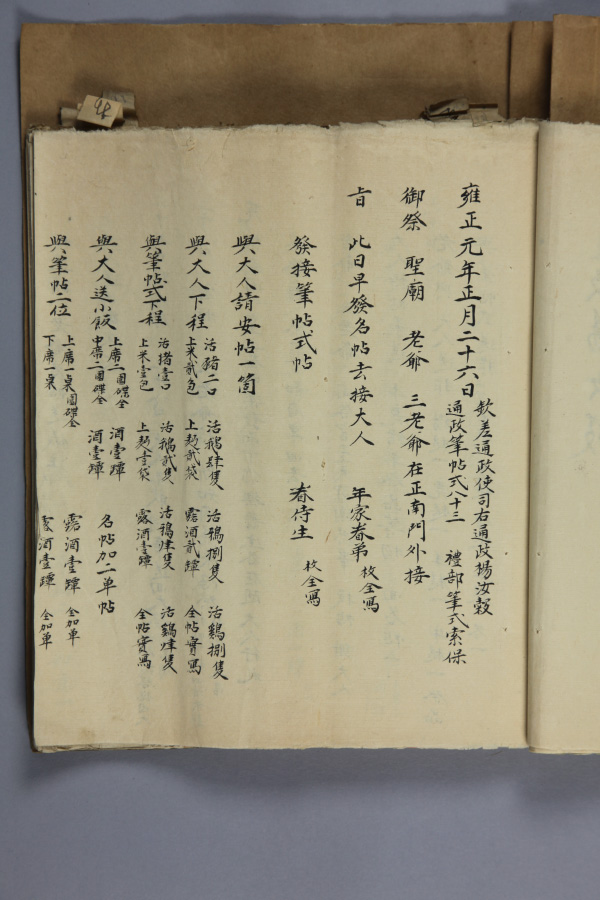 98
雍正元年正月二十六日
欽差通政使司右通政楊汝穀
通政筆帖式八十三 禮部筆式索保
御祭 聖廟 老爺 三老爺在正南門外接
旨 此日早發名帖去接大人 年家眷弟 枚全寫
發接筆帖式帖 眷侍生 枚全寫
與大人請安帖一箇
與大人下程
活猪二口 活鵝肆隻 活鴉捌隻 活鷄捌隻
上米貳包 上麪貳袋 露酒貳罈 全帖實寫
與筆帖式下程
活猪壹口 活鵝貳隻 活鴉肆隻 活鷄肆隻
上米壹包 上麪壹袋 露酒壹罈 全帖實寫
與大人送小飯
上席二圍碟全 酒壹罈 名帖加二单帖
中席二圍碟全 酒壹罈
與筆帖二位
上席一桌圍碟全 露酒壹罈 全加单
下席一桌 露酒壹罈 全加单